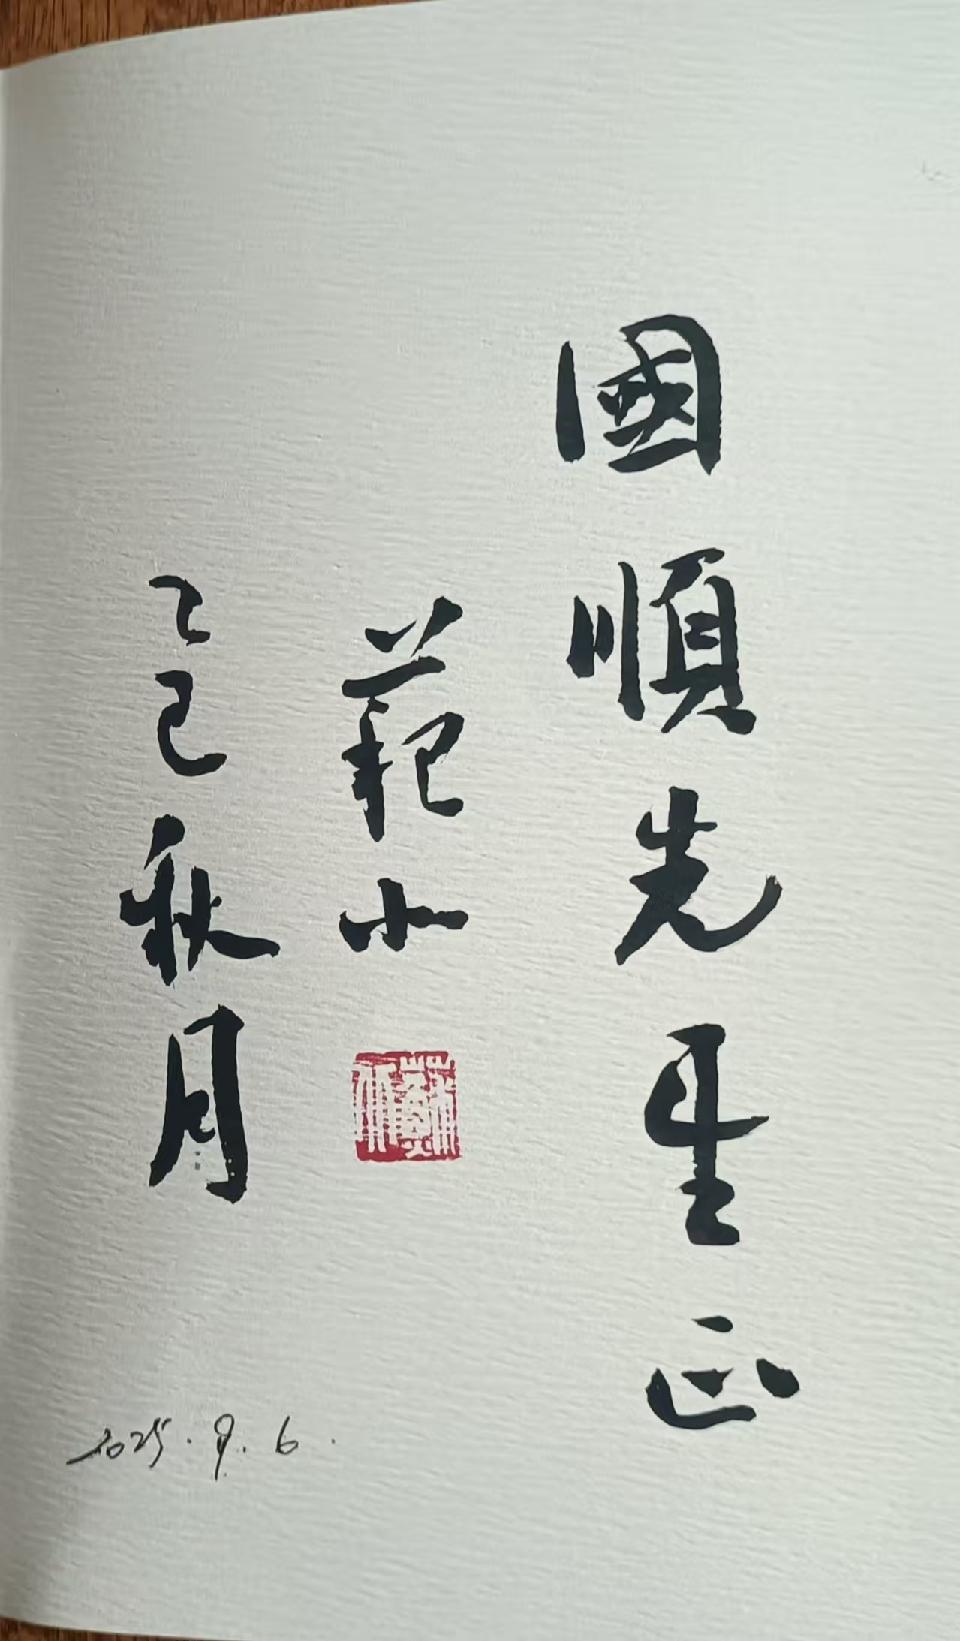 國順先生正
乙巳秋月
2025.9.6.